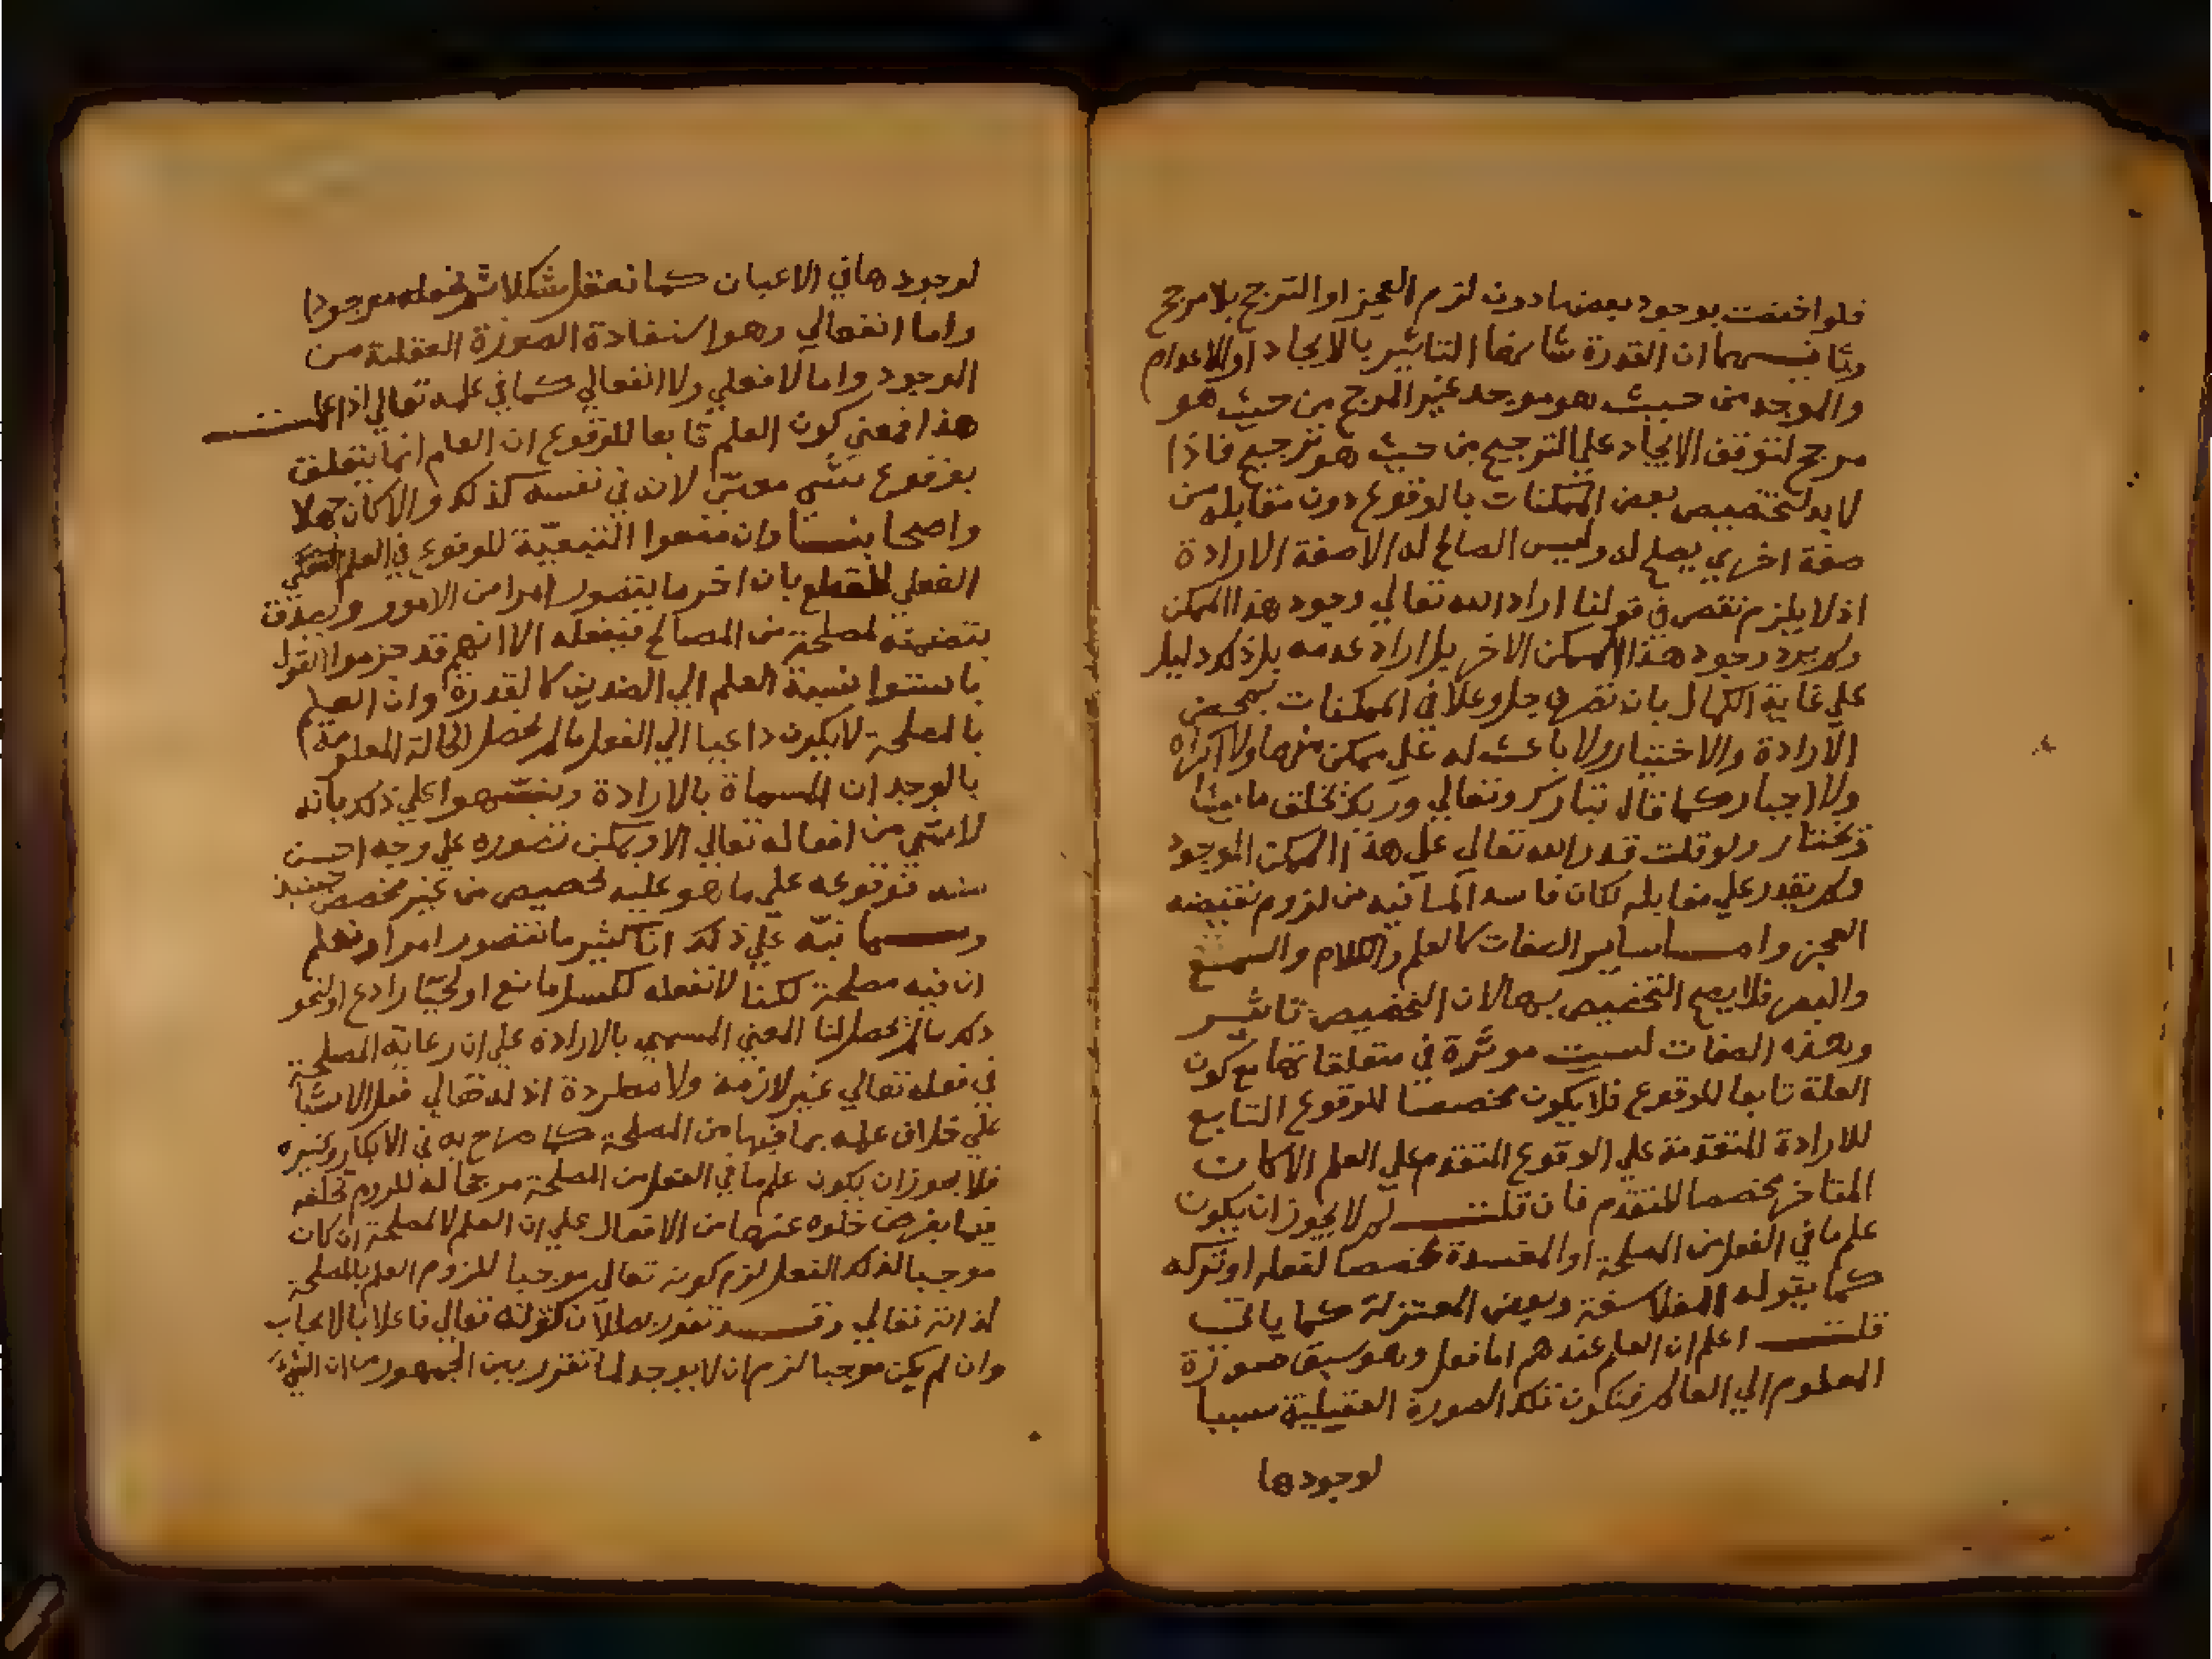 فلو اختصت بوجود بعضها دون لزم العجز او الترجح بلا مرجح
وثانيهما ان القدرة شانها التاثير بالايجاد او الاعدام
والموجد من حيث هو موجد غير المرجح من حيث هو
مرجح لتوقف الايجاد علي الترجيح من حيث هو ترجيح فاذا
لا بد لتخصيص بعض الممكنات بالوقوع دون مقابله من
صفة اخري يصلح له وليس الصالح له الا صفة الارادة
اذ لا يلزم نقص في قولنا اراد الله تعالي وجود هذا الممكن
ولم يرد وجود هذا الممكن الاخر بل اراد عدمه بل ذلك دليل
علي غاية الكمال بان تصرفه جل وعلا في الممكنات بمحض
الارادة والاختيار ولا باعث له علي ممكن منها ولا اكراه
ولا اجبار كما قال تبارك وتعالي وربك يخلق ما يشا
ويختار ولو قلت قدر الله تعالي علي هذا الممكن الموجود
ولم يقدر علي مقابله لكان فاسدا لما فيه من لزوم نقيضه
العجز واما ساير الصفات كالعلم والكلام والسمع
والبصر فلا يصح التخصيص بها لان التخصيص تاثير
وهذه الصفات ليست موثرة في متعلقاتها مع كون
العلة تابعا للوقوع فلا يكون مخصصا للوقوع التابع
للارادة المتقدمة علي الوقوع المتقدم علي العلم الا كان
المتاخر مخصصا للمتقدم فان قلت لم لا يجوز ان يكون
علم ما في الفعل من المصلحة او المفسدة مخصصا لفعله او تركه
كما يقوله الفلاسفة وبعض المعتزلة كما ياتي
قلت اعلم ان العلم عندهم اما فعلي وهو سبق صورة
المعلوم الي العالم فتكون تلك الصورة العقلية سببا
لوجودها
لوجودها في الاعيان كما نعقل شكلا ثم نجعله موجودا
واما انفعالي وهو استفادة الصورة العقلية من
الوجود واما لا فعلي ولا انفعالي كما في علمه تعالي اذا علمت
هذا فمعني كون العلم تابعا للوقوع ان العلم انما يتعلق
بوقوع شي معين لانه في نفسه كذلك والا كان جهلا
واصحابنا وان منعوا التبعية للوقوع في العلم
الفعلي للقطع بان اخر ما يتصور امرا من الامور ويصدق
بتضمنه لمصلحة من المصالح فيفعله الا انهم قد جزموا القول
باستوا نسبة العلم الي الضدين كالقدرة وان العلم
بالمصلحة لا يكون داعيا الي الفعل ما لم يحصل الحالة المعلومة
بالوجدان المسماة بالارادة ونبهوا علي ذلك بانه
لا شي من افعاله تعالي الا ويمكن تصوره علي وجه احسن
منه فوقوعه علي ما هو عليه تخصيص من غير مخصص حينيذ
ومما نبه علي ذلك انا كثير ما نتصور امرا ونعلم
ان فيه مصلحة لكنا لا نفعله لكسل مانع او لحيا رادع او نحو
ذلك ما لم يحصل لنا المعني المسمي بالارادة علي ان رعاية المصلحة
في فعله تعالي غير لازمة ولا مطردة اذ له تعالي فعل الاشيا
علي خلاف علمه بما فيها من المصلحة كما صرح به في الابكار وغيره
فلا يجوز ان يكون علم ما في الفعل من المصلحة مرجحا له للزوم تخلفه
فيما يفرض خلوه عنها من الافعال علي ان العلم لالمصلحة ان كان
موجبا لذلك الفعل لزم كونه تعالي موجبا للزوم العلم بالمصلحة
لذاته تعالي وقد تقرر بطلان كونه تعالي فاعلا بالايجاب
وان لم يكن موجبا لزم ان لا يوجد لما تقرر بين الجمهور من ان الشي